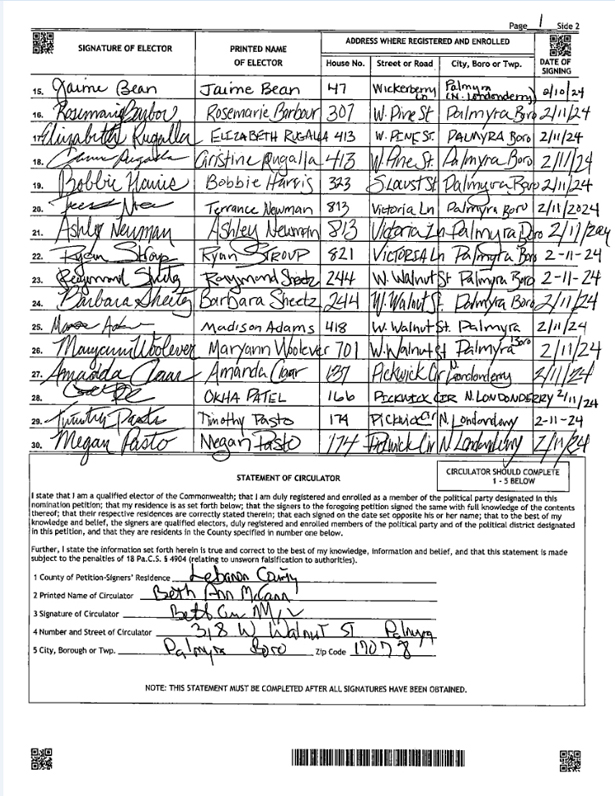 Page 1 Side 2
SIGNATURE OF ELECTOR PRINTED NAME OF ELECTOR ADDRESS WHERE REGISTERED AND ENROLLED DATE OF SIGNING
House No. Street or Road City, Boro or Twp.
15. Jaime Bean Jaime Bean 47 Wickerberry Ln Palmyra (N. Londonderry) 2/10/24
16. Rosemarie Barbour Rosemarie Barbour 307 W. Pine St Palmyra Boro 2/11/24
17. Elizabeth Rugalla ELIZABETH RUGALLA 413 W. PINE ST. PALMYRA BORO 2/11/24
18. Christine Rugalla 413 W. Pine St. Palmyra Boro 2/11/24
19. Bobbie Harris Bobbie Harris 323 S Locust St Palmyra Boro 2/11/24
20. Terrance Newman 813 Victoria Ln Palmyra Boro 2/11/2024
21. Ashley Newman Ashley Newman 813 Victoria Ln Palmyra Boro 2/11/2024
22. Ryan Stroup Ryan STROUP 821 VICTORIA Ln Palmyra Boro 2-11-24
23. Raymond Sheetz Raymond Sheetz 244 W. Walnut St Palmyra Boro 2-11-24
24. Barbara Sheetz Barbara Sheetz 244 W. Walnut St. Palmyra Boro 2/11/24
25. Madison Adams 418 W. Walnut St. Palmyra 2/11/24
26. Maryann Woolever Maryann Woolever 701 W. Walnut St Palmyra Boro 2/11/24
27. Amanda Claar Amanda Claar Pickwick Cir N. Londonderry 2/11/24
28. PATEL 166 PICKWICK CIR N. LONDONDERRY 2/11/24
29. Timothy Pasto Timothy Pasto 174 Pickwick Cir N. Londonderry 2-11-24
30. Megan Pasto Megan Pasto 174 Pickwick Cir N Londonderry 2/11/24
STATEMENT OF CIRCULATOR
CIRCULATOR SHOULD COMPLETE
1 - 5 BELOW
I state that I am a qualified elector of the Commonwealth; that I am duly registered and enrolled as a member of the political party designated in this
nomination petition; that my residence is as set forth below; that the signers to the foregoing petition signed the same with full knowledge of the contents
thereof; that their respective residences are correctly stated therein; that each signed on the date set opposite his or her name; that to the best of my
knowledge and belief, the signers are qualified electors, duly registered and enrolled members of the political party and of the political district designated
in this petition, and that they are residents in the County specified in number one below.
Further, I state the information set forth herein is true and correct to the best of my knowledge, information and belief, and that this statement is made
subject to the penalties of 18 Pa.C.S. § 4904 (relating to unsworn falsification to authorities).
1 County of Petition-Signers' Residence Lebanon County
2 Printed Name of Circulator Beth Ann McCann
3 Signature of Circulator
4 Number and Street of Circulator 318 W Walnut St Palmyra
5 City, Borough or Twp. Palmyra Boro Zip Code 17078
NOTE: THIS STATEMENT MUST BE COMPLETED AFTER ALL SIGNATURES HAVE BEEN OBTAINED.